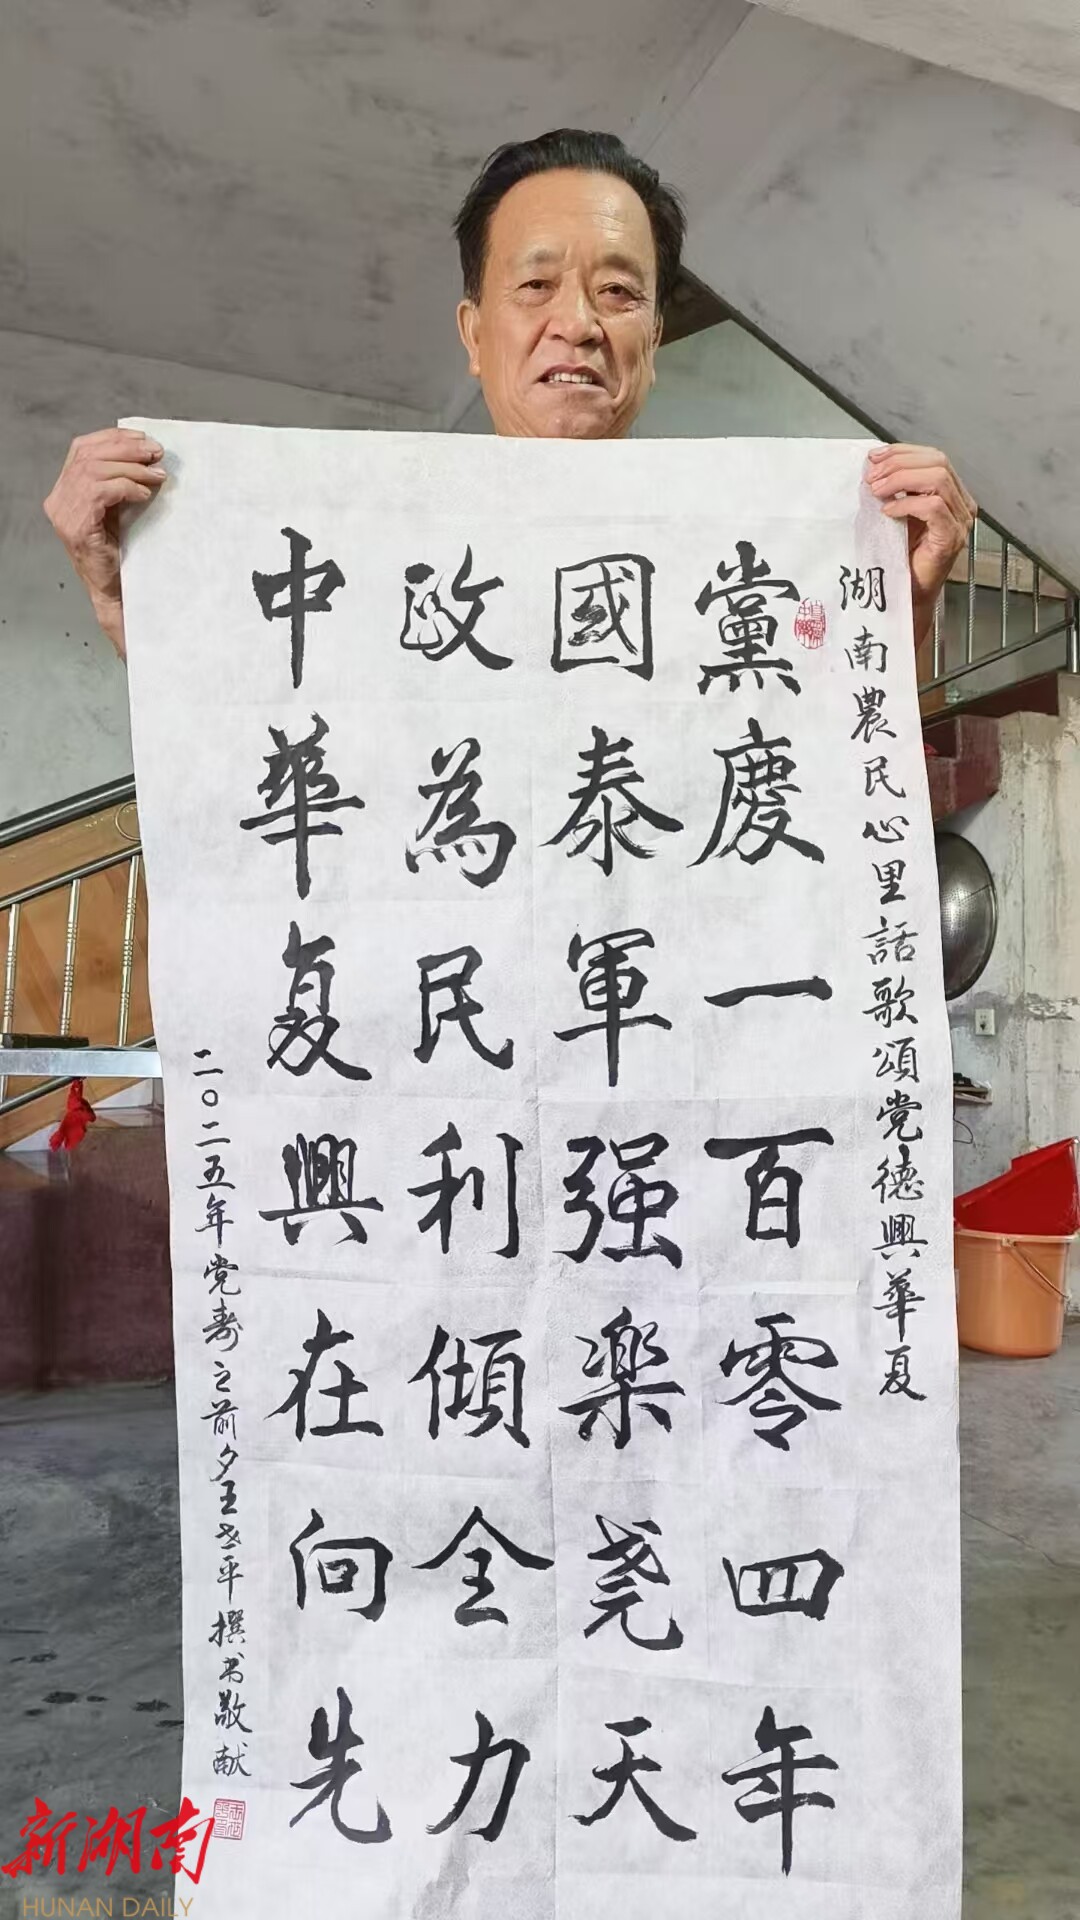 湖南農民心里話歌頌党德興華夏
黨慶一百零四年
國泰軍强楽尧天
政為民利傾全力
中華复興在向先
二〇二五年党寿之前夕王志平撰书敬献
新湖南
HUNAN DAILY